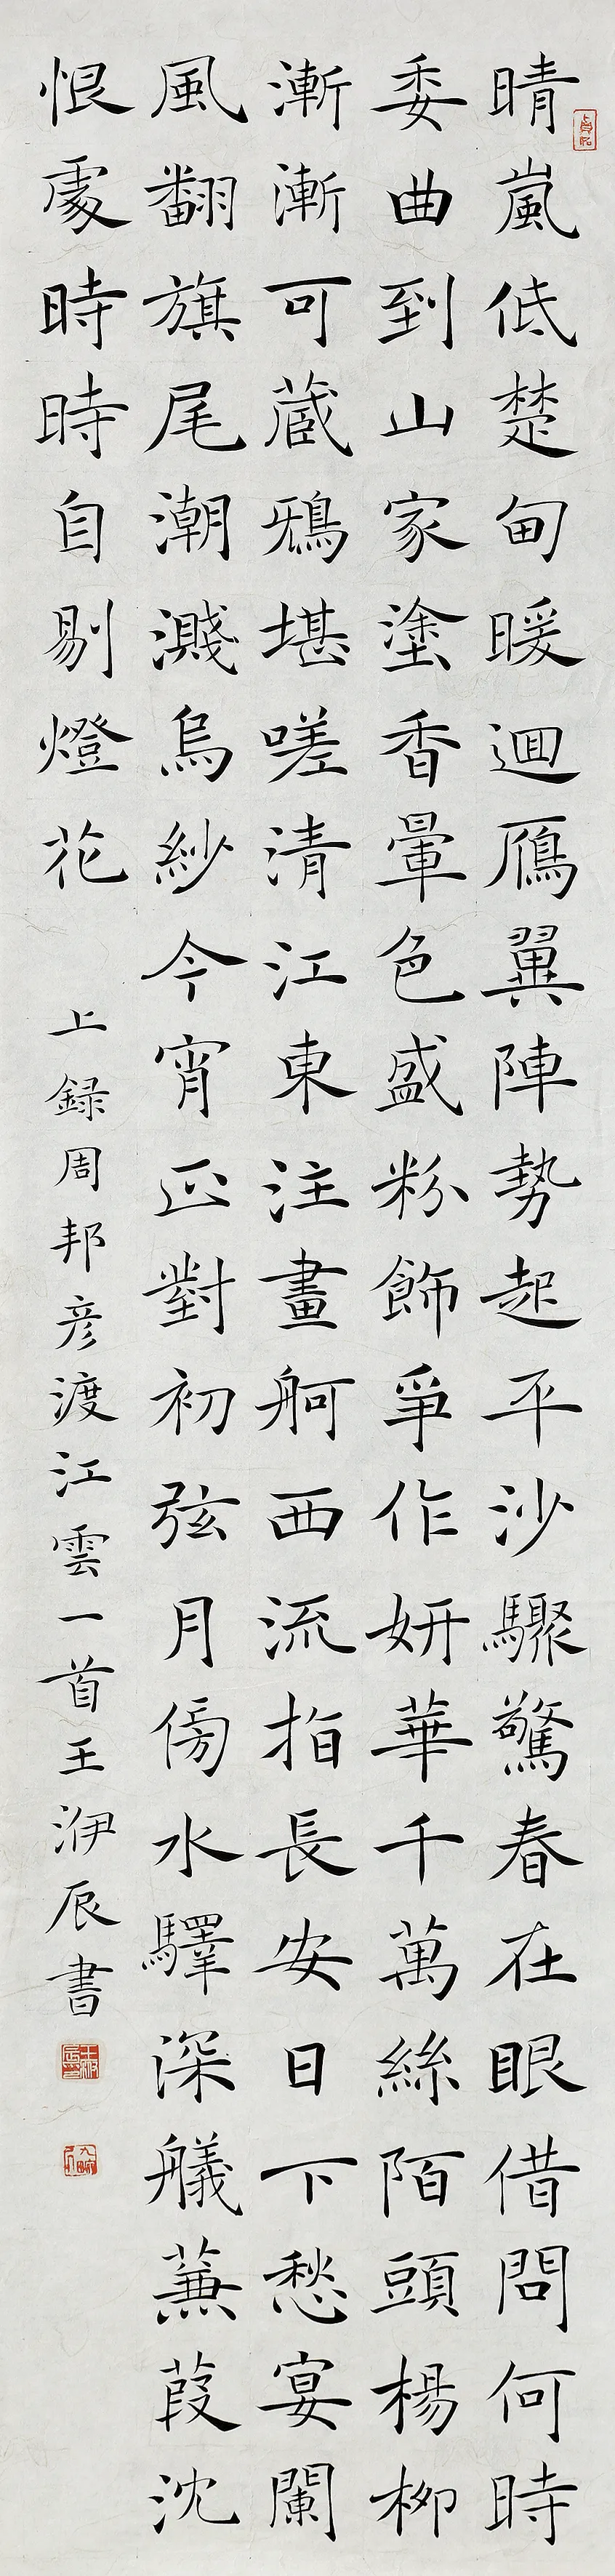 晴嵐低楚甸暖迴鴈翼陣勢起平沙驟驚春在眼借問何時
委曲到山家塗香暈色盛粉飾爭作妍華千萬絲陌頭楊柳
漸漸可蔵鴉堪嗟清江東注畫舸西流指長安日下愁宴闌
風翻旗尾潮濺烏紗今宵正對初弦月傍水驛深艤蒹葭沈
恨處時時自剔燈花
上録周邦彦渡江雲一首王洢辰書